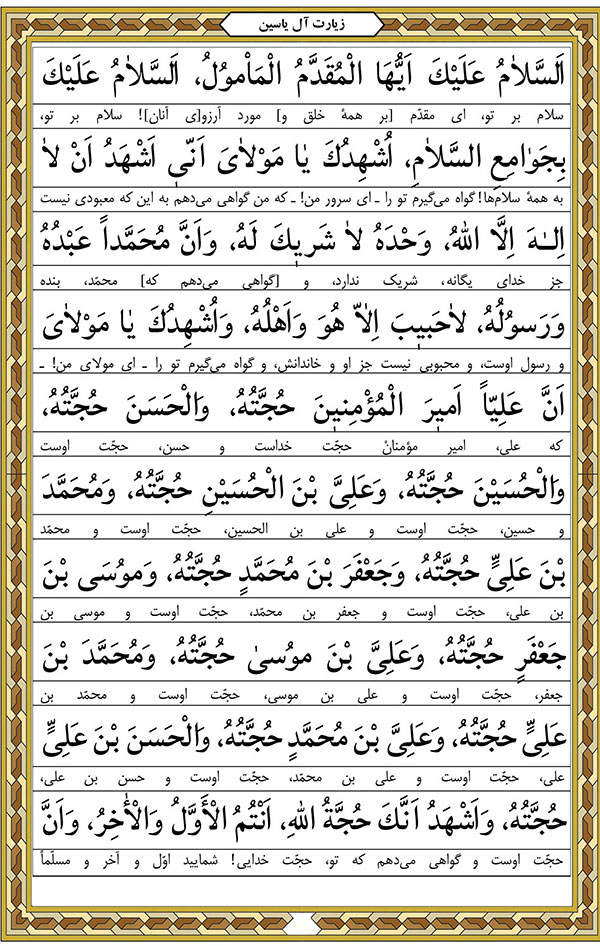 زیارت آل یاسین
اَلسَّلاٰمُ عَلَیْكَ اَیُّهَا الْمُقَدَّمُ الْمَاْموُلُ، اَلسَّلاٰمُ عَلَیْكَ
سلام بر تو، ای مقدّم [بر همهٔ خلق و] مورد آرزو[ی آنان]! سلام بر تو،
بِجَوٰامِعِ السَّلاٰمِ، اُشْهِدُكَ یٰا مَوْلاٰیَ اَنّی اَشْهَدُ اَنْ لاٰ
به همهٔ سلام‌ها! گواه می‌گیرم تو را ـ ای سرور من! ـ که من گواهی می‌دهم به این که معبودی نیست
اِلـٰهَ اِلَّا اللهُ، وَحْدَهُ لاٰ شَریكَ لَهُ، وَاَنَّ مُحَمَّداً عَبْدُهُ
جز خدای یگانه، شریک ندارد، و [گواهی می‌دهم که] محمّد، بنده
وَرَسوُلُهُ، لاٰحَبیبَ اِلاّٰ هُوَ وَاَهْلُهُ، وَاُشْهِدُكَ یٰا مَوْلاٰیَ
و رسول اوست، و محبوبی نیست جز او و خاندانش، و گواه می‌گیرم تو را ـ ای مولای من! ـ
اَنَّ عَلِیّاً اَمیرَ الْمُؤْمِنینَ حُجَّتُهُ، وَالْحَسَنَ حُجَّتُهُ،
که علی، امیر مؤمنان حجّت خداست و حسن، حجّت اوست
وَالْحُسَیْنَ حُجَّتُهُ، وَعَلِیَّ بْنَ الْحُسَیْنِ حُجَّتُهُ، وَمُحَمَّدَ
و حسین، حجّت اوست و علی بن الحسین، حجّت اوست و محمّد
بْنَ عَلِیٍّ حُجَّتُهُ، وَجَعْفَرَ بْنَ مُحَمَّدٍ حُجَّتُهُ، وَموُسَی بْنَ
بن علی، حجّت اوست و جعفر بن محمّد، حجّت اوست و موسی بن
جَعْفَرٍ حُجَّتُهُ، وَعَلِیَّ بْنَ موُسیٰ حُجَّتُهُ، وَمُحَمَّدَ بْنَ
جعفر، حجّت اوست و علی بن موسی، حجّت اوست و محمّد بن
عَلِیٍّ حُجَّتُهُ، وَعَلِیَّ بْنَ مُحَمَّدٍ حُجَّتُهُ، وَالْحَسَنَ بْنَ عَلِیٍّ
علی، حجّت اوست و علی بن محمّد، حجّت اوست و حسن بن علی،
حُجَّتُهُ، وَاَشْهَدُ اَنَّكَ حُجَّةُ اللهِ، اَنْتُمُ الْأَوَّلُ وَالْأٰخِرُ، وَاَنَّ
حجّت اوست و گواهی می‌دهم که تو، حجّت خدایی! شمایید اوّل و آخر و مسلّماً